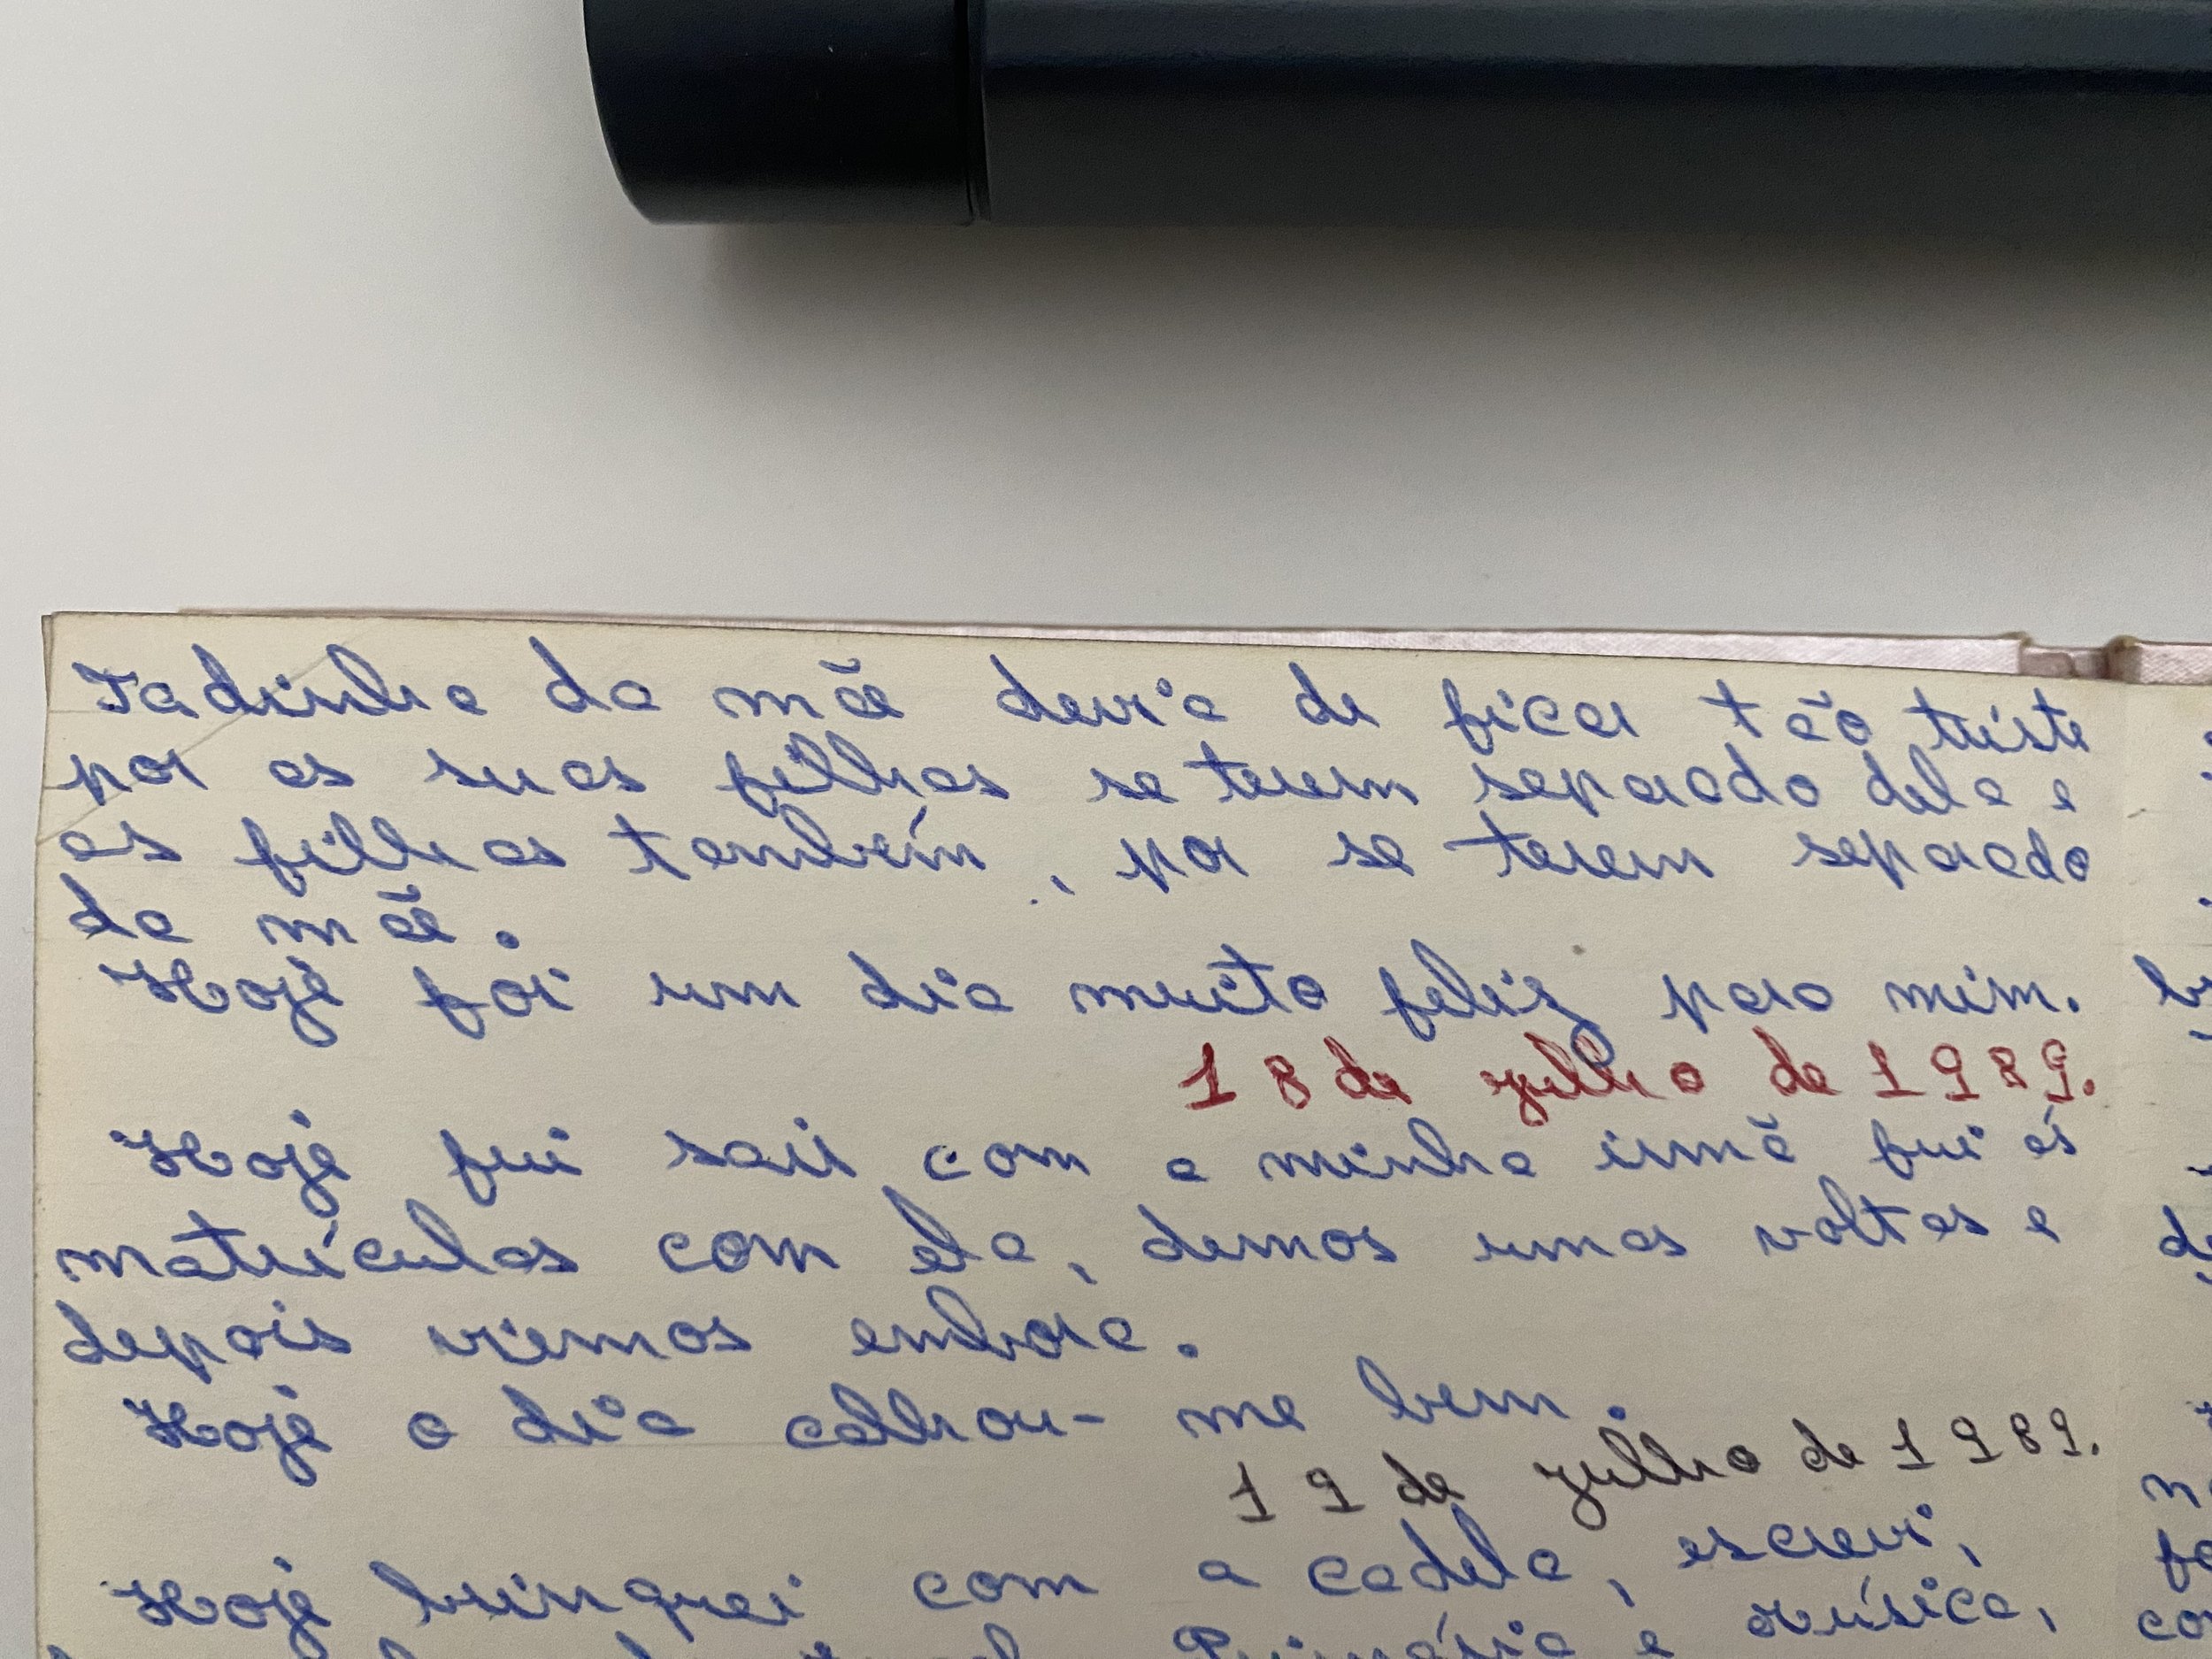 Tadinha da mãe devia de ficar tão triste
por as suas filhas se terem separado dela e
as filhas tambêm, por se terem separado
da mãe.
Hoje foi um dia muito feliz para mim.
18 de julho de 1989.
Hoje fui sair com a minha irmã fui ás
matrículas com ela, demos umas voltas e
depois viemos embora.
Hoje o dia calhou-me bem.
19 de julho de 1989.
Hoje brinquei com a cadela, escrevi,
Primária e música,